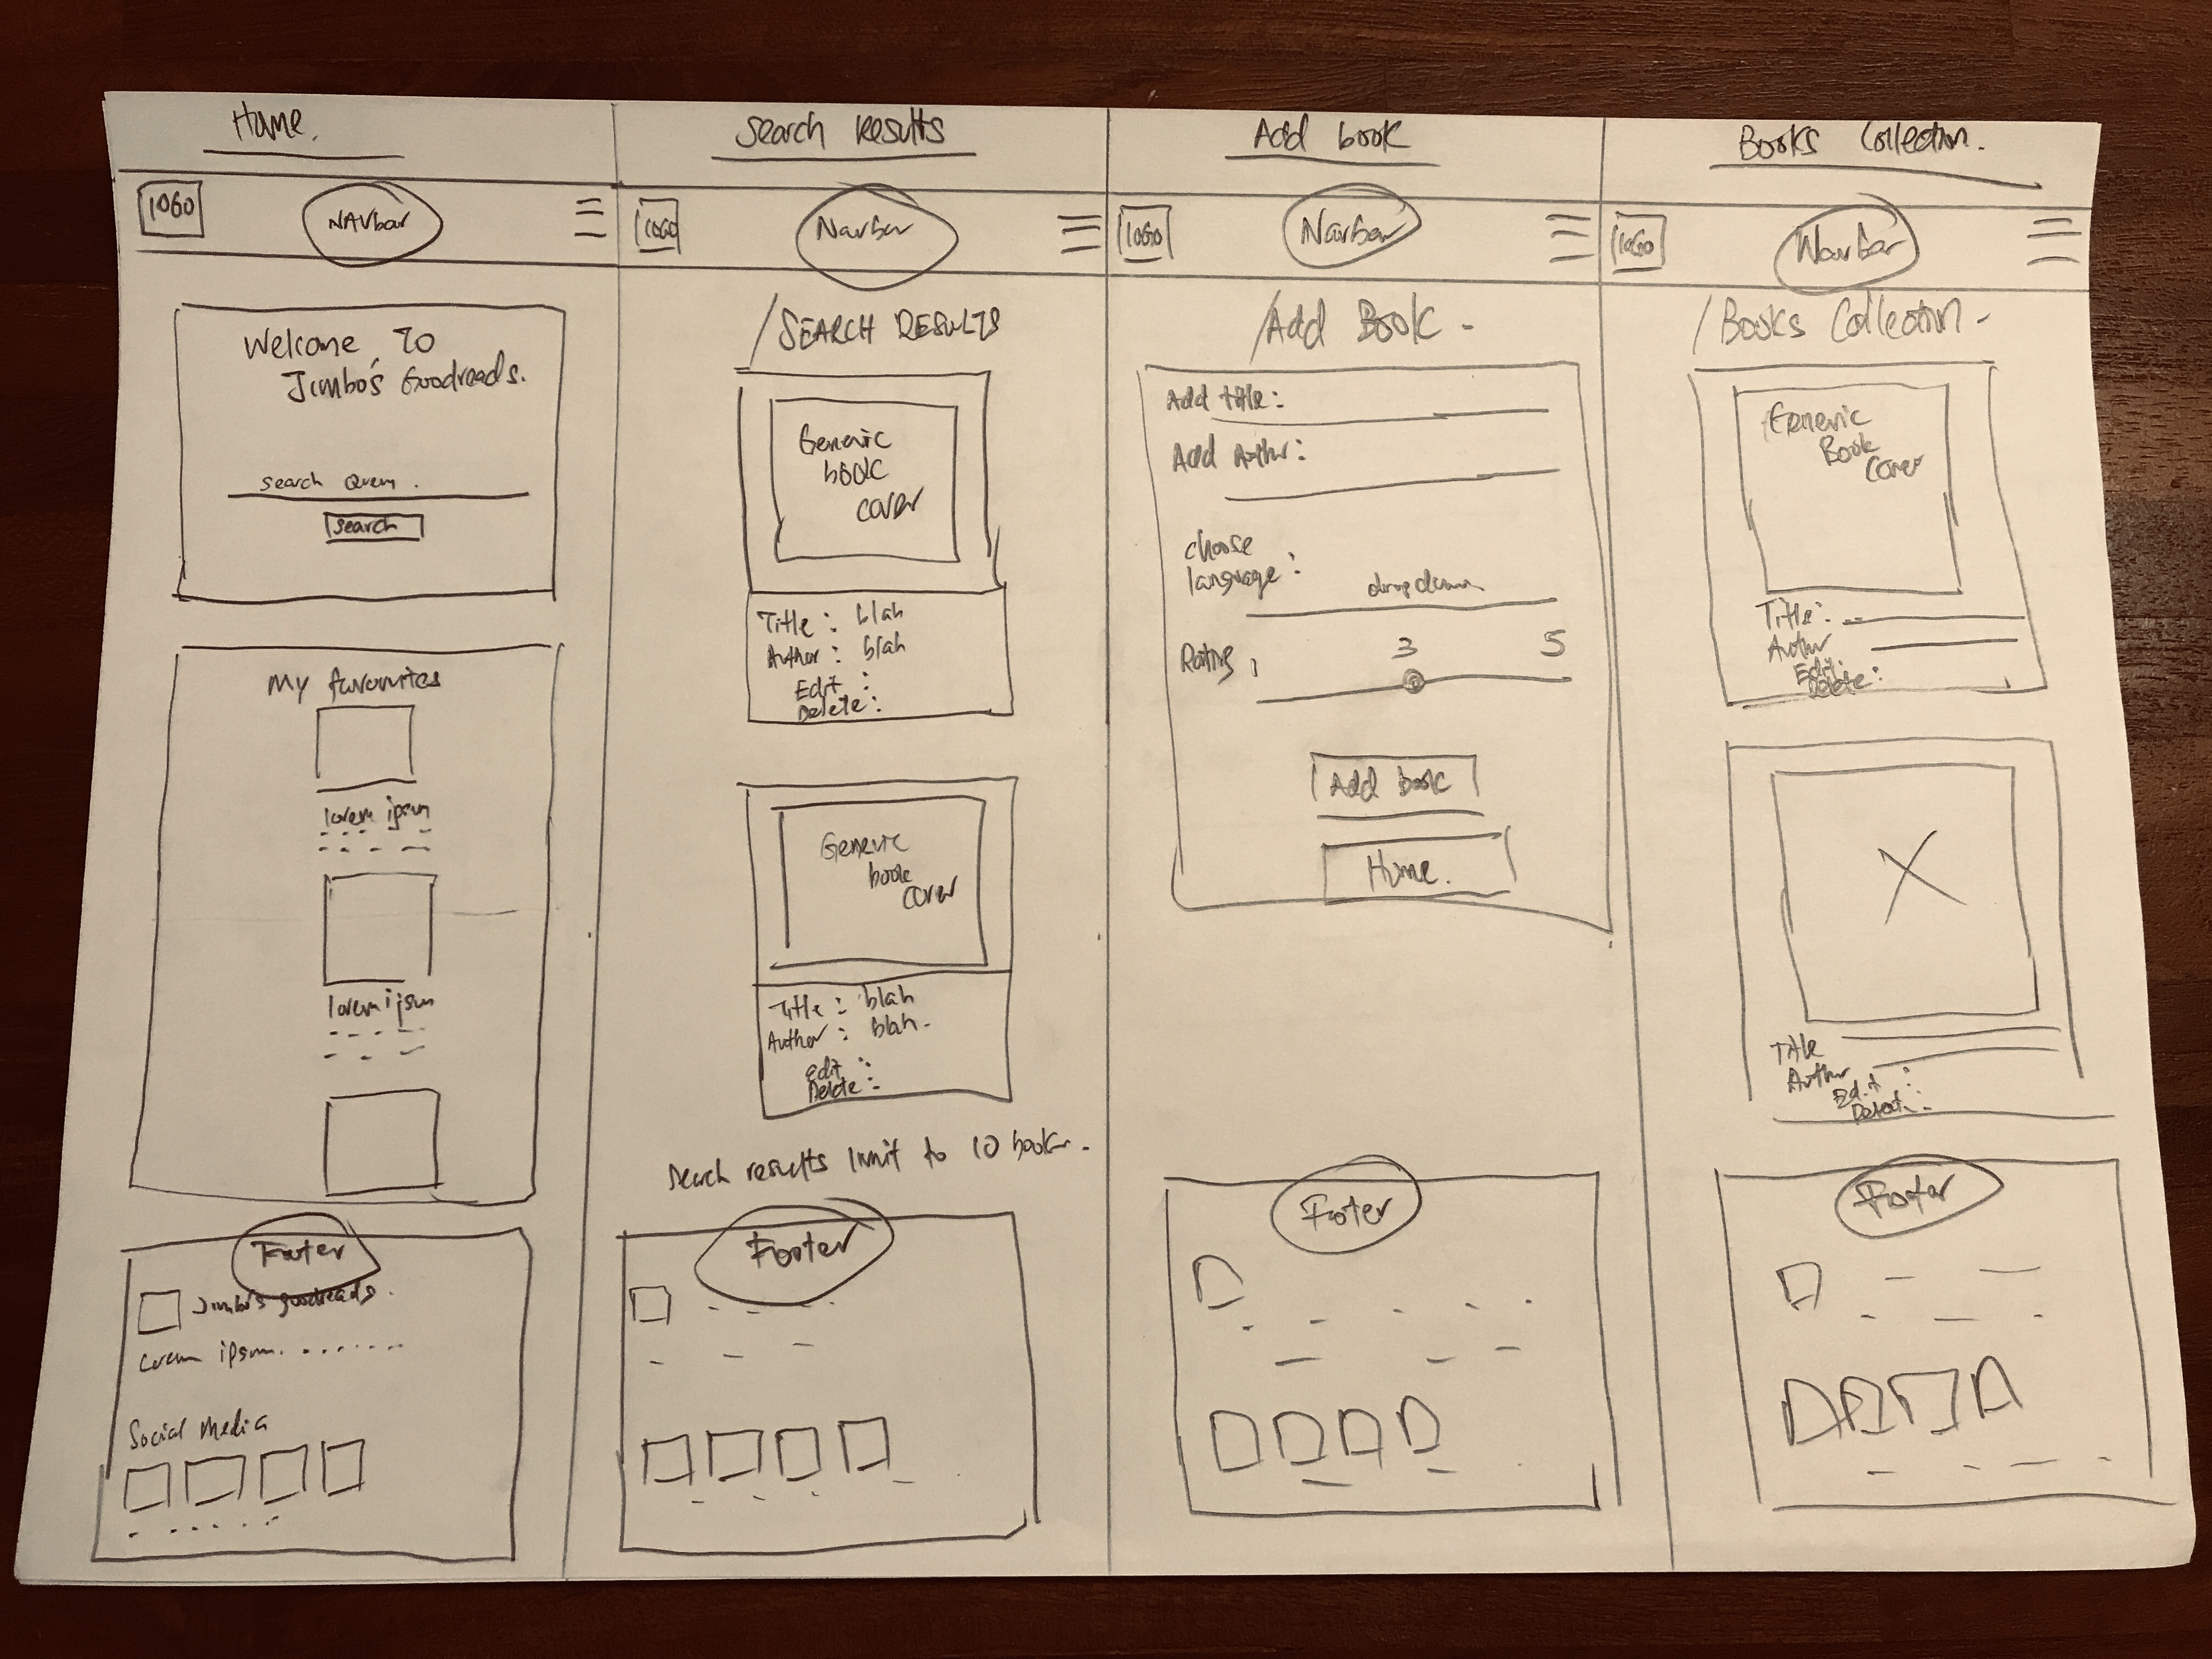 Home.
LOGO
NAVbar
Welcome To
Jimbo's Goodreads.
search Query.
search
My favourites
lorem ipsum
lorem ipsum
Footer
Jimbo's goodreads.
Lorem ipsum.
Social Media
Search Results
LOGO
Navbar
/SEARCH RESULTS
Generic
book
cover
Title : blah
Author : blah
Edit :
Delete :
Generic
book
cover
Title : blah
Author : blah.
edit :
Delete :
Search results limit to 10 books.
Footer
Add book
LOGO
Navbar
/Add Book -
Add title :
Add Author :
choose
language :
dropdown
Rating 1 3 5
Add book
Home.
Footer
Books Collection.
LOGO
Navbar
/Books Collection -
Generic
Book
Cover
Title :
Author
Edit :
Delete :
Title
Author
Edit :
Footer